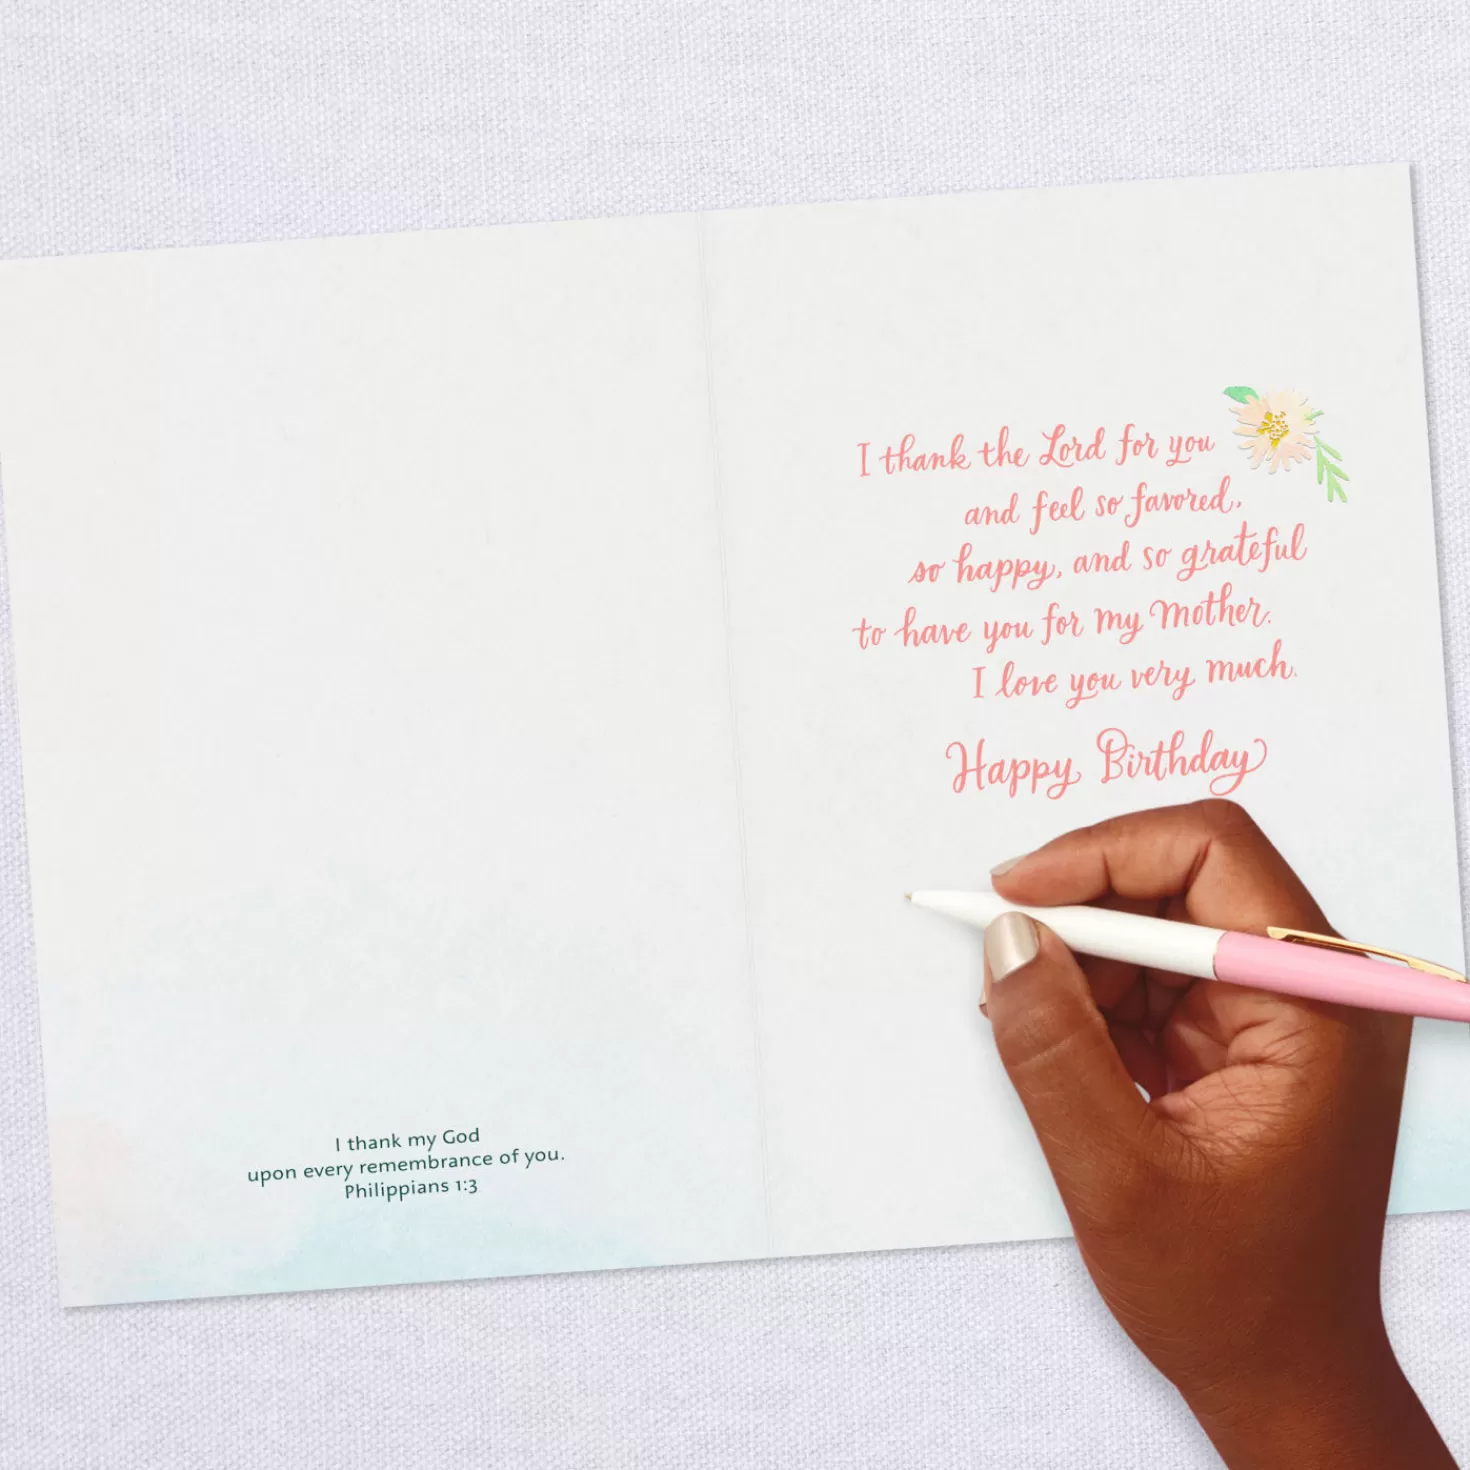 I thank my God
upon every remembrance of you.
Philippians 1:3
I thank the Lord for you
and feel so favored,
so happy, and so grateful
to have you for my Mother.
I love you very much.
Happy Birthday